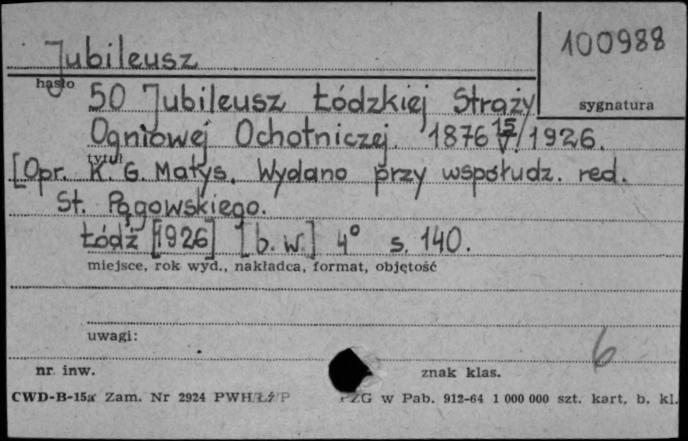 Jubileusz
100988
hasło
sygnatura
50 Jubileusz Łódzkiej Straży
Ogniowej Ochotniczej. 1876 15/V./1926.
tytuł
[Opr. K. G. Matys. Wydano przy współudz. red.
St. Pągowskiego.
Łódź [1926] [b. w.] 4° s. 140.
miejsce, rok wyd., nakładca, format, objętość
uwagi:
6
nr inw.
znak klas.
CWD-B-15a Zam. Nr 2924 PWH/ŁŻ/P
PZG w Pab. 912-64 1 000 000 szt. kart. b. kl.